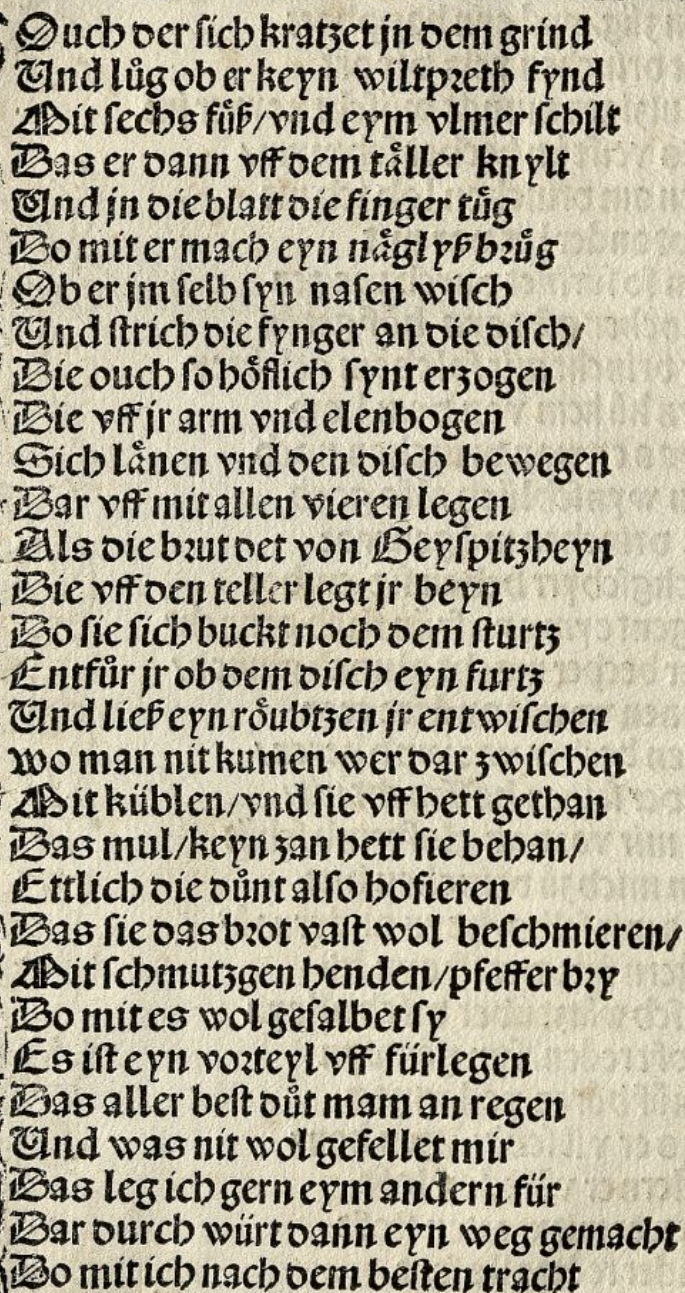 Ouch der sich kratzet jn dem grind
Vnd lůg ob er keyn wiltpreth fynd
Mit sechs fůß/vnd eym vlmer schilt
Das er dann vff dem tåller knylt
Vnd jn die blatt die finger tůg
Do mit er mach eyn någlyß brůg
Ob er jm selb syn nasen wisch
Vnd strich die fynger an die disch/
Die ouch so hôflich synt erzogen
Die vff jr arm vnd elenbogen
Sich lånen vnd den disch bewegen
Dar vff mit allen vieren legen
Als die brut det von Geyspitzheyn
Die vff den teller legt jr beyn
Do sie sich buckt noch dem sturtz
Entfůr jr ob dem disch eyn furtz
Vnd ließ eyn rôubtzen jr entwischen
wo man nit kumen wer dar zwischen
Mit küblen/vnd sie vff hett gethan
Das mul/keyn zan hett sie behan/
Ettlich die důnt also hofieren
Das sie das brot vast wol beschmieren/
Mit schmutzgen henden/pfeffer bry
Do mit es wol gesalbet sy
Es ist eyn vorteyl vff fürlegen
Das aller best důt mam an regen
Vnd was nit wol gefellet mir
Das leg ich gern eym andern für
Dar durch würt dann eyn weg gemacht
Do mit ich nach dem besten tracht